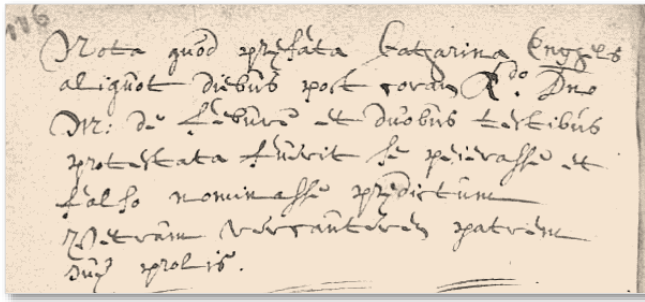 176
Nota quod præfata Catharina Engels
aliquot diebus post coram Rdo. Dno
M: de febure et duobus testibus
protestata fuerit se peierasse et
falso nominasse prædictum
Petrum patrem
suæ prolis.